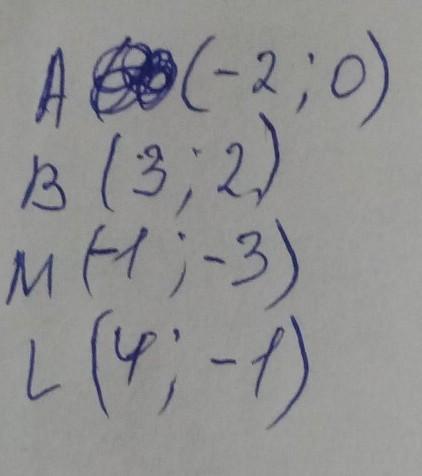 A (-2; 0)
B (3; 2)
M (-1; -3)
L (4; -1)